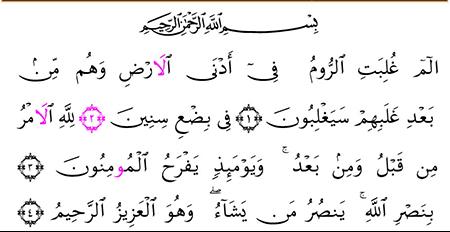 بِسْمِ اللَّهِ الرَّحْمَٰنِ الرَّحِيمِ
الٓمٓ غُلِبَتِ الرُّومُ فِىٓ أَدْنَى الَارْضِ وَهُم مِّنۢ
بَعْدِ غَلَبِهِمْ سَيَغْلِبُونَ ﴿١﴾ فِى بِضْعِ سِنِينَ ﴿٢﴾ لِلَّهِ الَامْرُ
مِن قَبْلُ وَمِنۢ بَعْدُ ۚ وَيَوْمَئِذٍ يَفْرَحُ الْمُومِنُونَ ﴿٣﴾
بِنَصْرِ اللَّهِ ۚ يَنصُرُ مَن يَشَآءُ ۖ وَهُوَ الْعَزِيزُ الرَّحِيمُ ﴿٤﴾